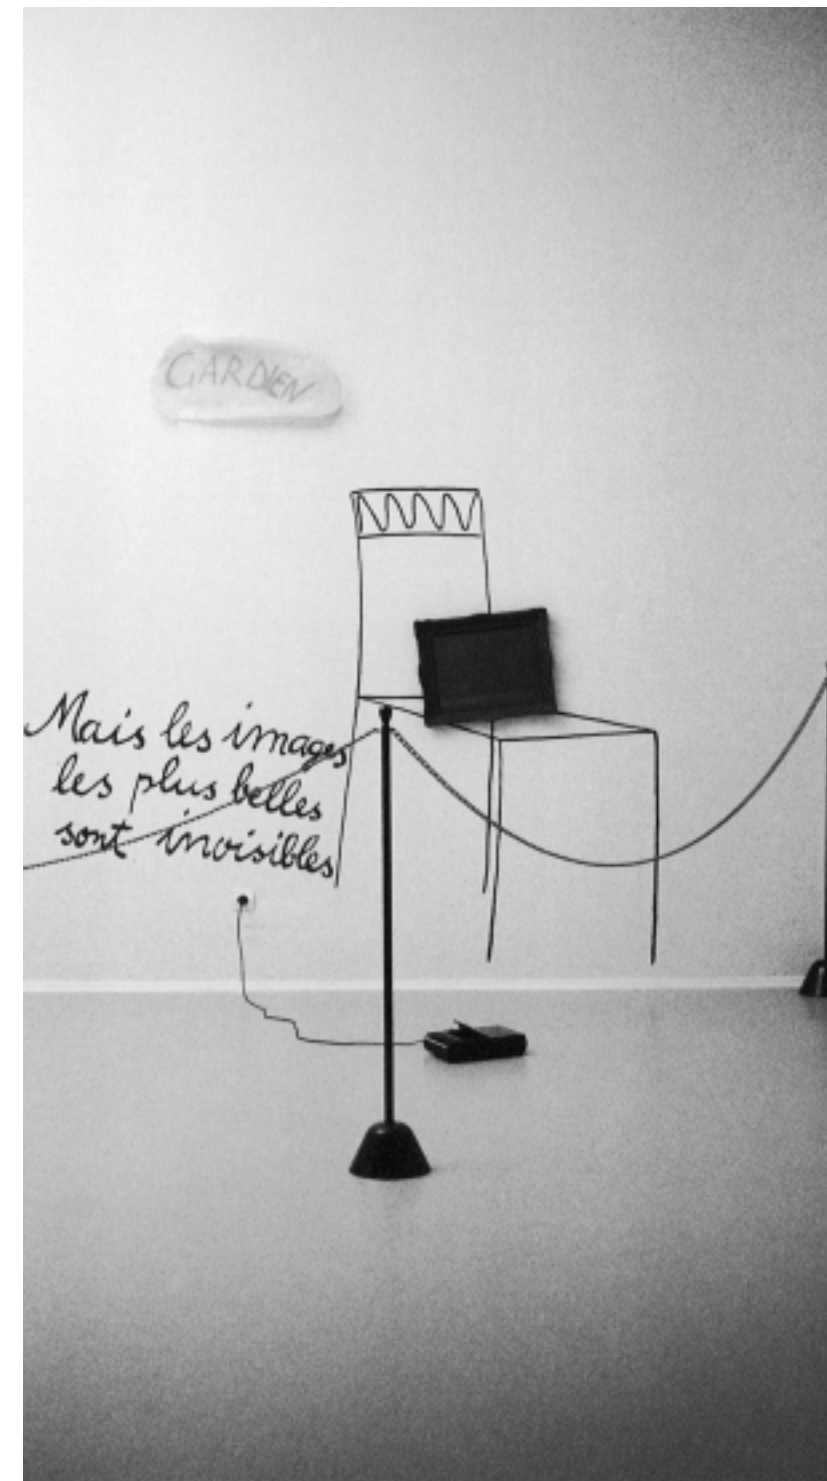 GARDIEN
Mais les images
les plus belles
sont invisibles